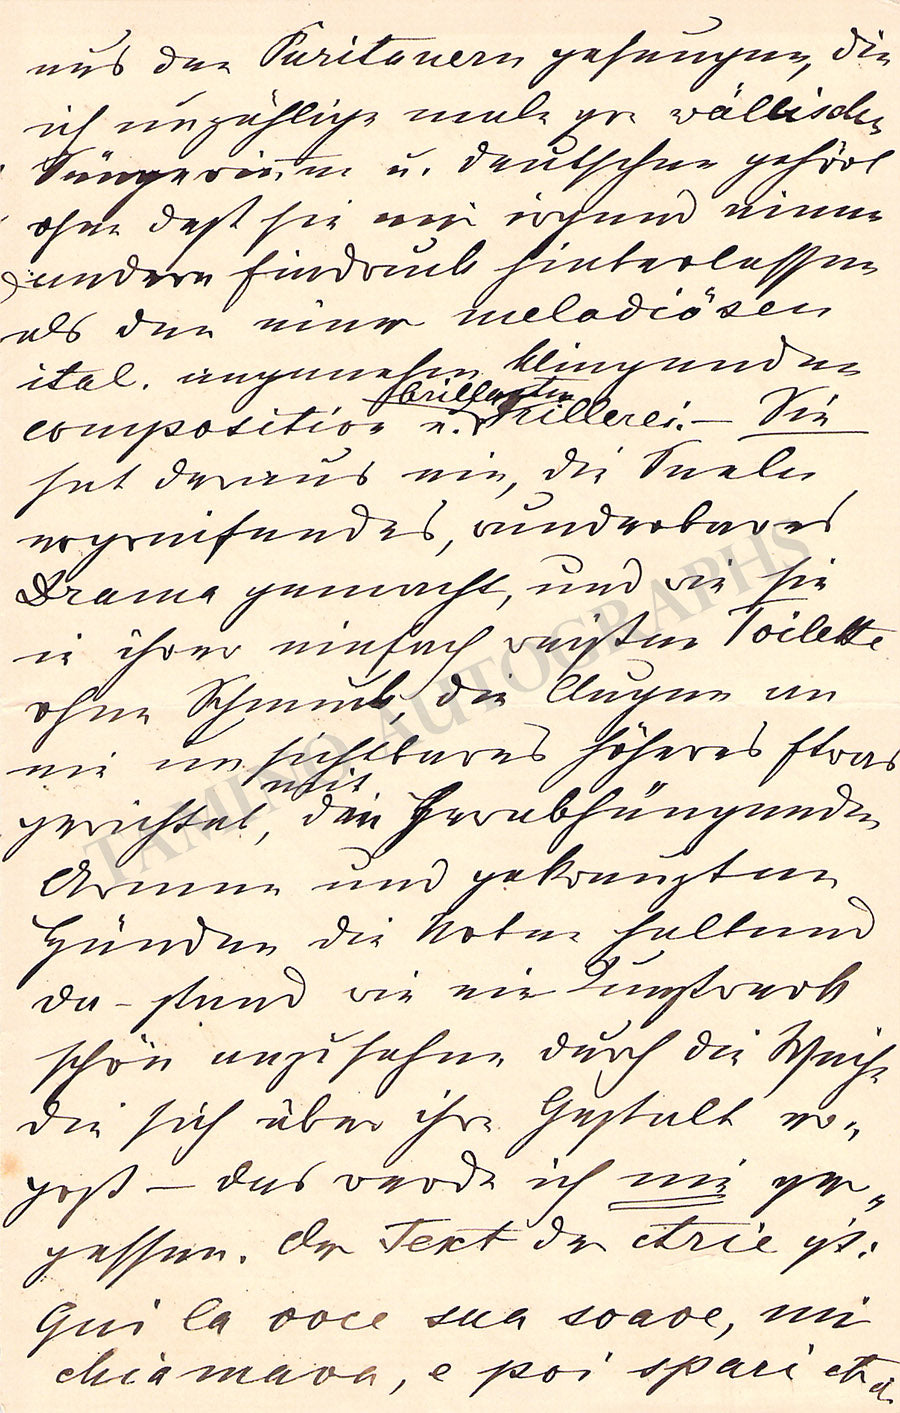 aus den Puritanern gesungen, die
ich unzählige male von wällischen
Sängerinnen u. deutschen gehört
ohne daß sie mir irgend einen
andern Eindruck hinterlassen
als den einer melodiösen
ital. angenehm klingenden
composition u. brillanten Trillerei. — Sie
hat daraus ein, die Seele
ergreifendes, wunderbares
Drama gemacht, und wie sie
in ihrer einfach weißen Toilette
ohne Schmuck, die Augen an
ein unsichtbares höheres Etwas
gerichtet, mit den herabhängenden
Armen und gekreuzten
Händen die Noten haltend
da-stand wie ein Kunstwerk
schön anzusehen durch die Weihe
die sich über ihre Gestalt er„
goß — das werde ich nie ver„
gessen. Der Text der Arie ist:
Qui la voce sua soave, mi
chiamava, e poi spari
TAMINO AUTOGRAPHS